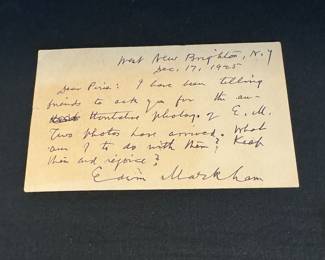 West New Brighton, N.Y
Dec. 17, 1925
Dear Pirie: I have been telling
friends to ask you for the au-
thoritative photog. of E. M.
Two photos have arrived. What
am I to do with them? Keep
them and rejoice?
Edwin Markham